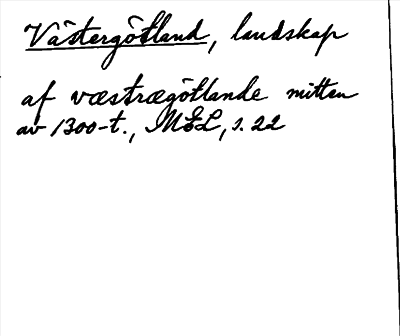 Västergötland, landskap
af væstrægötlande mitten
av 1300-t., MEL, s. 22